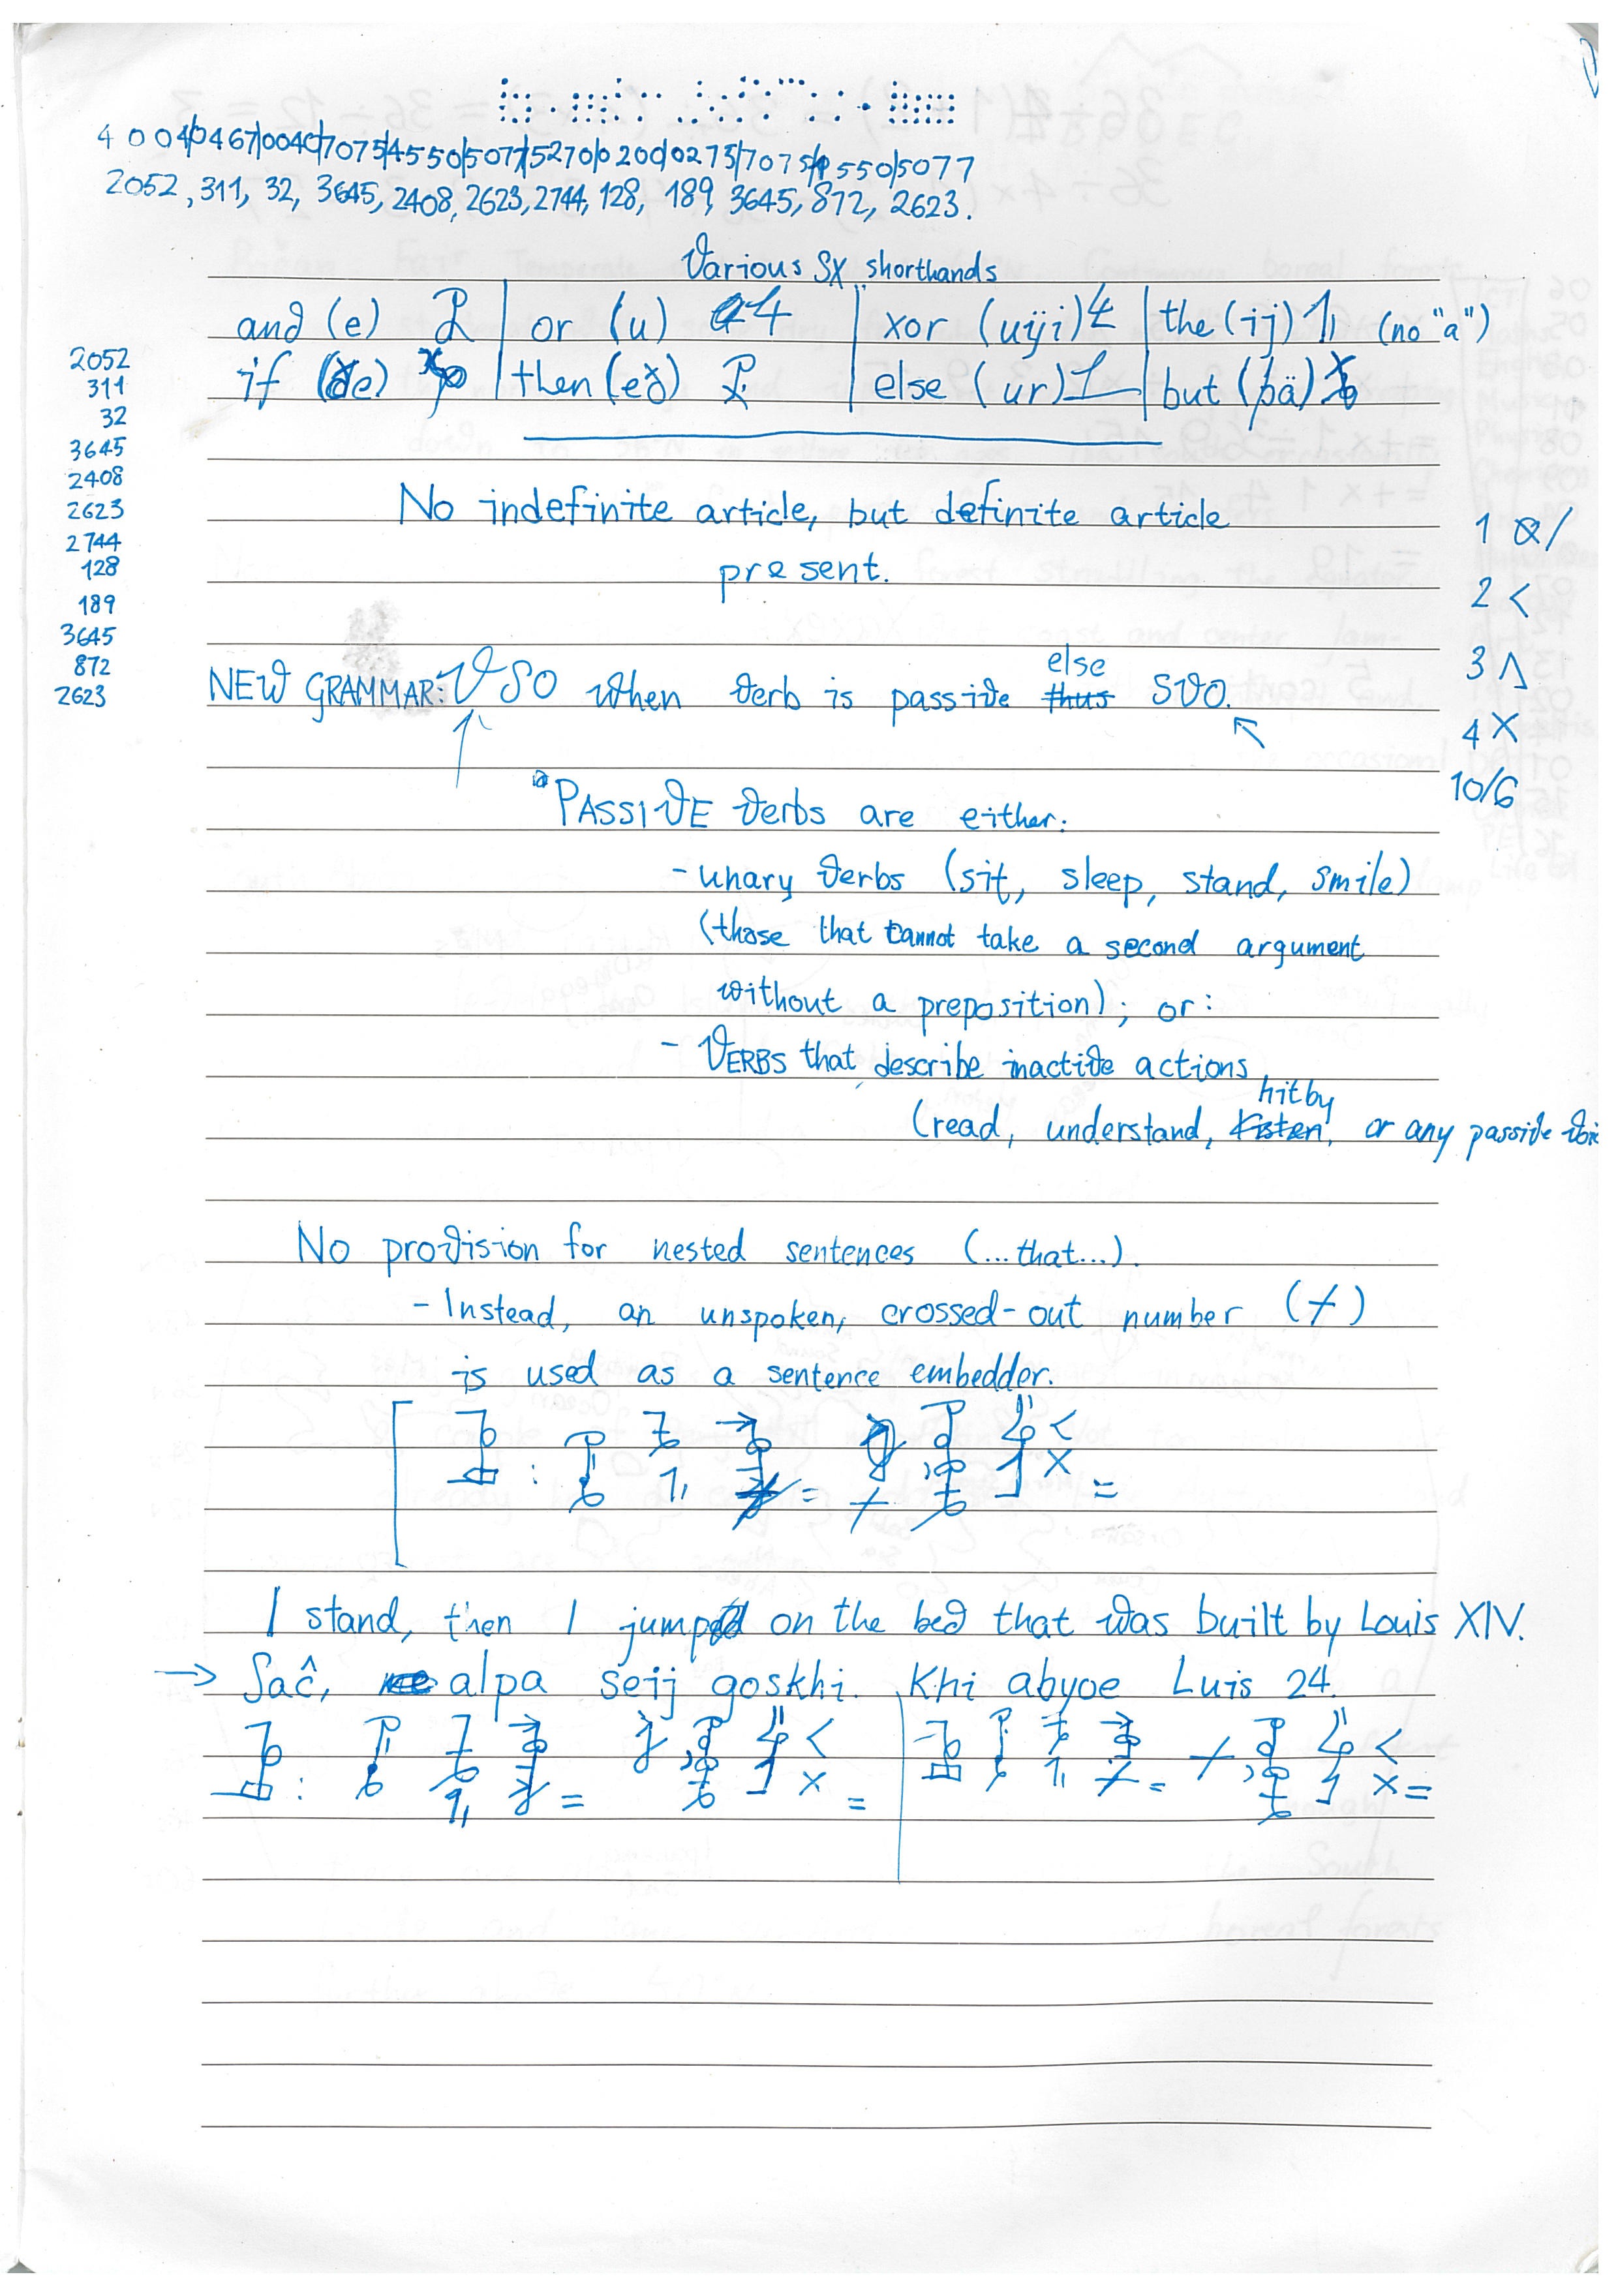 4 0 0 4/0 4 6 7/0040/7075/4550/5077/5270/0200/0275/7075/1550/5077
2052, 311, 32, 3645, 2408, 2623, 2744, 128, 189, 3645, 872, 2623.
Various SX shorthands
and (e) | or (u) | xor (uÿi) | the (ij) (no "a")
if (ðe) | then (eð) | else (ur) | but (þä)
2052
311
32
3645
2408
2623
2744
128
189
3645
872
2623
No indefinite article, but definite article
present.
1 /
2 <
3 Λ
4 X
10/6
else
NEW GRAMMAR: VSO when verb is passive thus SVO.
PASSIVE verbs are either:
- unary verbs (sit, sleep, stand, smile)
(those that cannot take a second argument
without a preposition); or:
- VERBS that describe inactive actions
hit by
(read, understand, listen, or any passive
No provision for nested sentences (...that...).
- Instead, an unspoken, crossed-out number (/)
is used as a sentence embedder.
I stand, then I jumped on the bed that was built by Louis XIV.
→ Saĉ, alpa seij goskhi. Khi abyoe Luis 24.